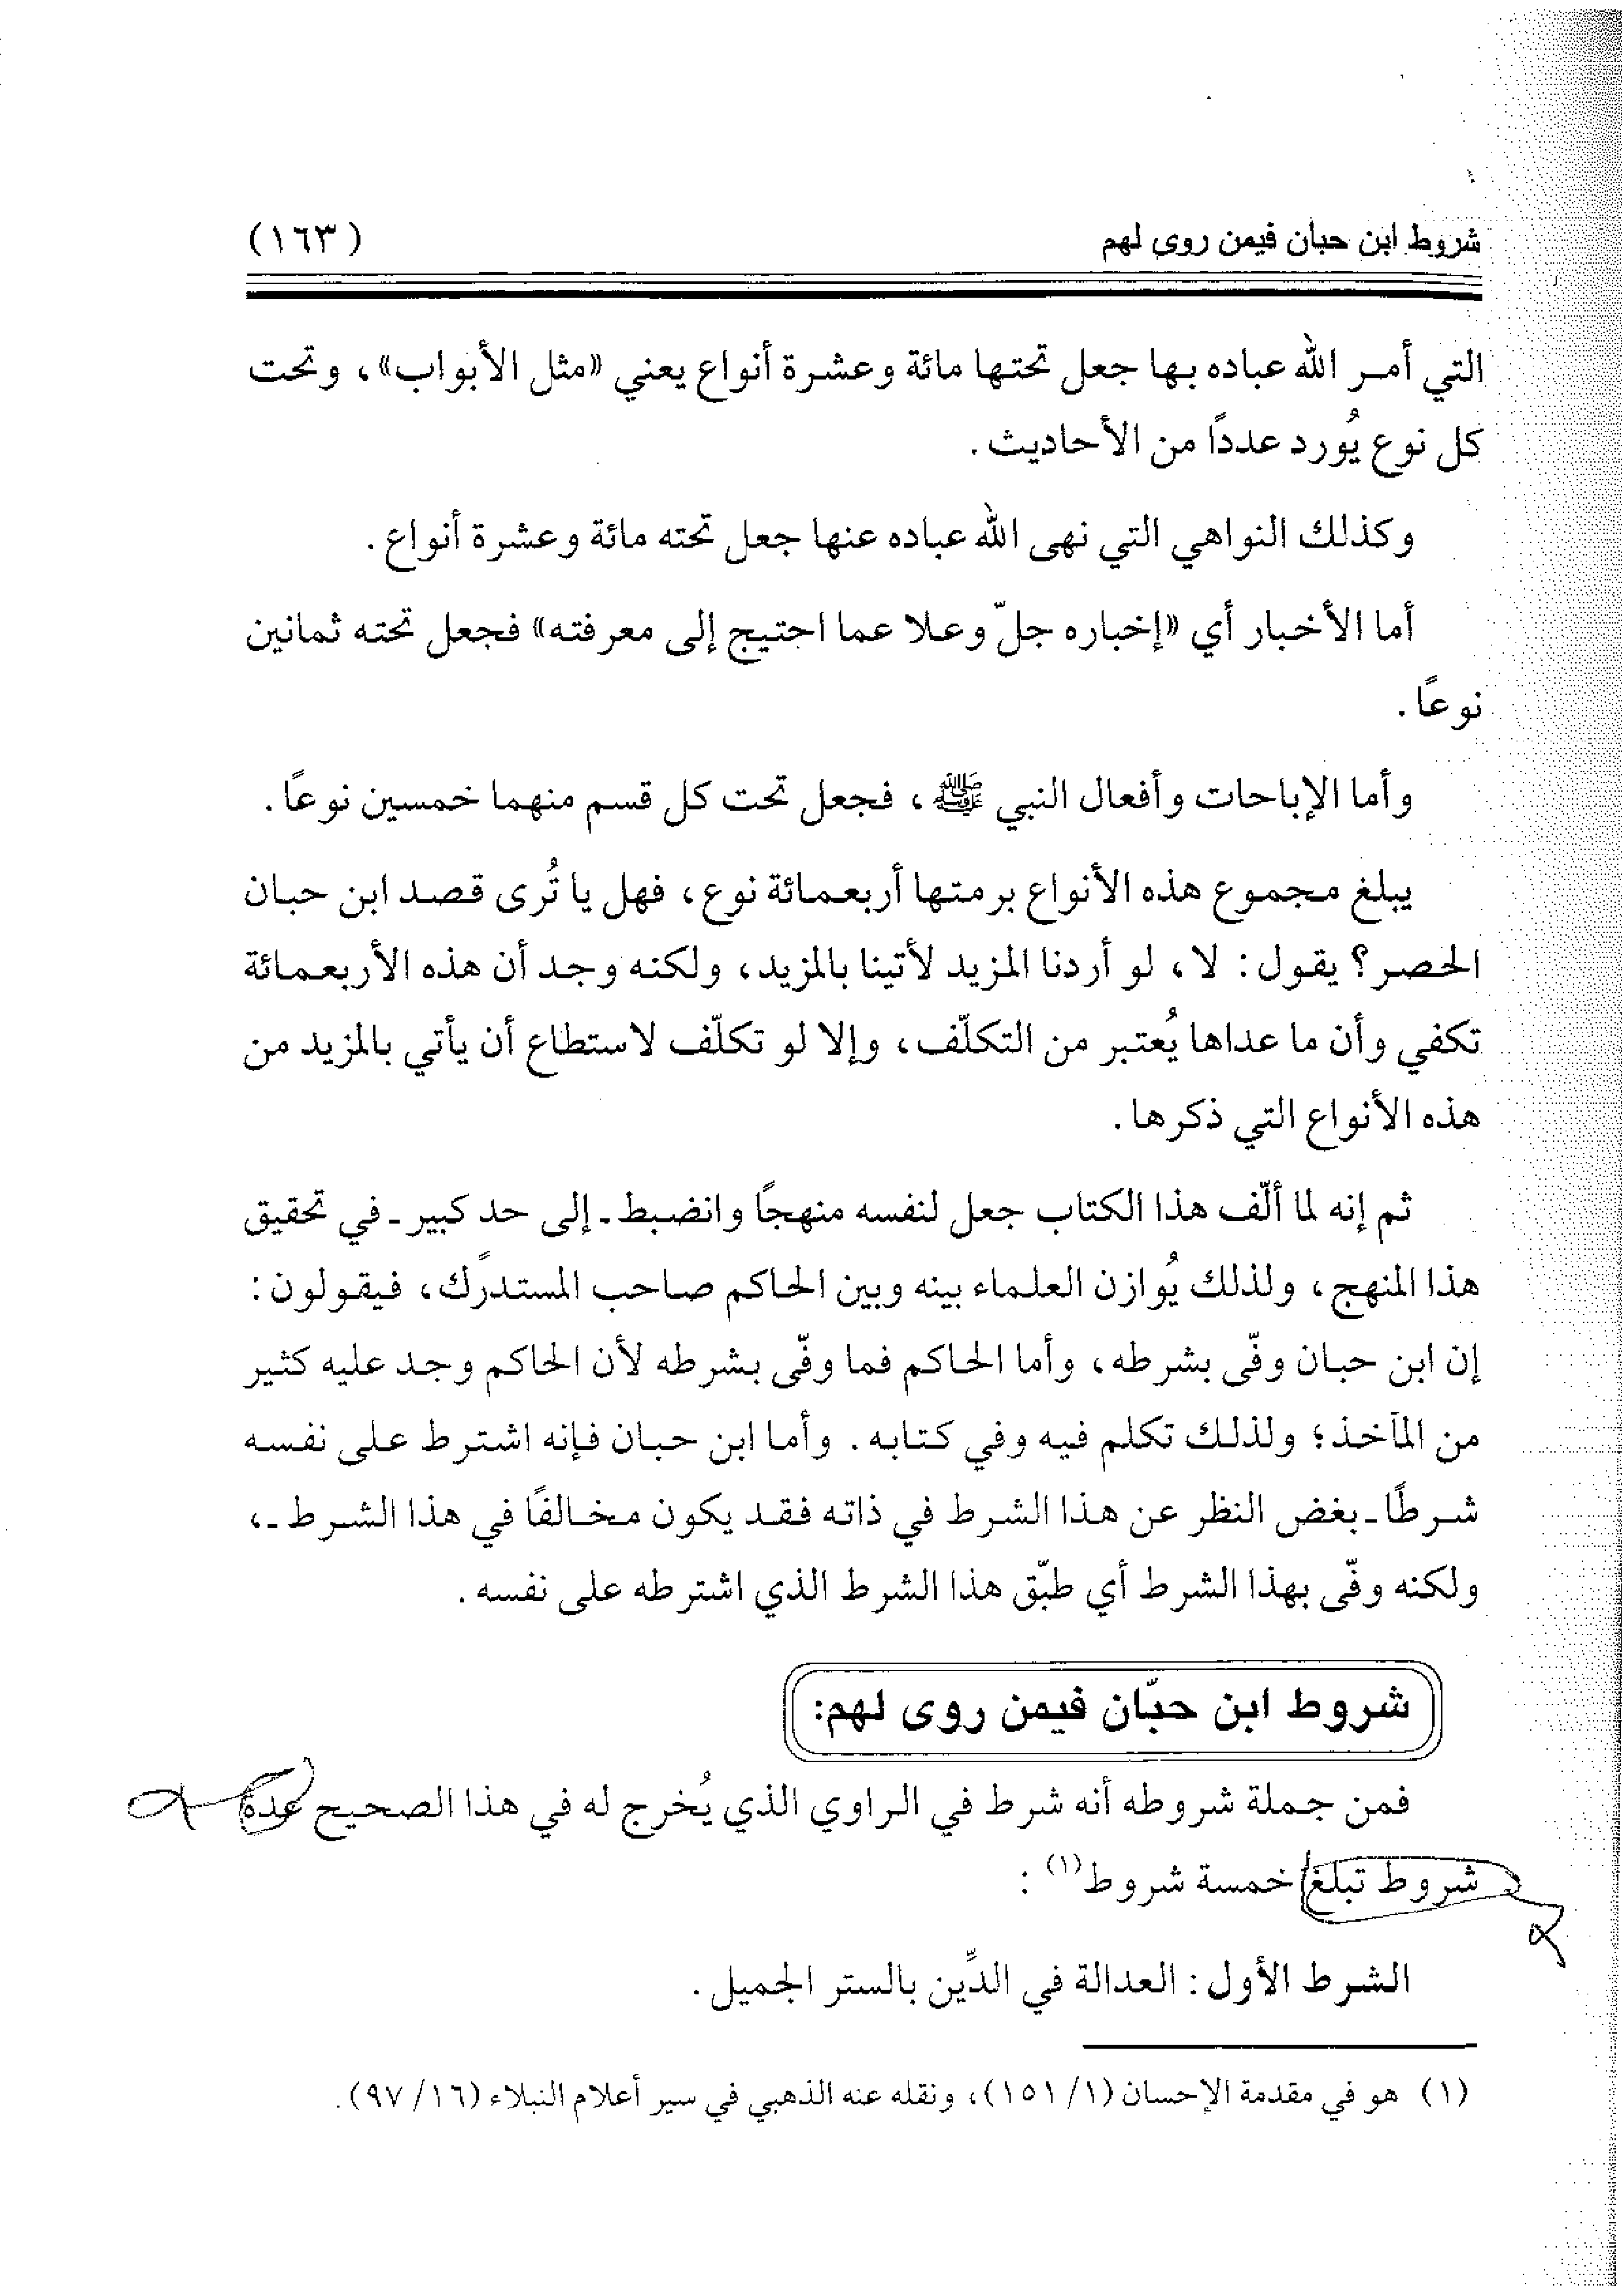 شروط ابن حبان فيمن روى لهم
(١٦٣)
التي أمر الله عباده بها جعل تحتها مائة وعشرة أنواع يعني «مثل الأبواب»، وتحت
كل نوع يُورد عددًا من الأحاديث.
وكذلك النواهي التي نهى الله عباده عنها جعل تحته مائة وعشرة أنواع.
أما الأخبار أي «إخباره جلّ وعلا عما احتيج إلى معرفته» فجعل تحته ثمانين
نوعًا.
وأما الإباحات وأفعال النبي ﷺ، فجعل تحت كل قسم منهما خمسين نوعًا.
يبلغ مجموع هذه الأنواع برمتها أربعمائة نوع، فهل يا تُرى قصد ابن حبان
الحصر؟ يقول: لا، لو أردنا المزيد لأتينا بالمزيد، ولكنه وجد أن هذه الأربعمائة
تكفي وأن ما عداها يُعتبر من التكلّف، وإلا لو تكلّف لاستطاع أن يأتي بالمزيد من
هذه الأنواع التي ذكرها.
ثم إنه لما ألّف هذا الكتاب جعل لنفسه منهجًا وانضبط ـ إلى حد كبير ـ في تحقيق
هذا المنهج، ولذلك يُوازن العلماء بينه وبين الحاكم صاحب المستدرَك، فيقولون:
إن ابن حبان وفّى بشرطه، وأما الحاكم فما وفّى بشرطه لأن الحاكم وجد عليه كثير
من المآخذ؛ ولذلك تكلم فيه وفي كتابه. وأما ابن حبان فإنه اشترط على نفسه
شرطًا ـ بغض النظر عن هذا الشرط في ذاته فقد يكون مخالفًا في هذا الشرط ـ،
ولكنه وفّى بهذا الشرط أي طبّق هذا الشرط الذي اشترطه على نفسه.
شروط ابن حبّان فيمن روى لهم:
فمن جملة شروطه أنه شرط في الراوي الذي يُخرج له في هذا الصحيح عدة
شروط تبلغ خمسة شروط(١):
الشرط الأول: العدالة في الدِّين بالستر الجميل.
(١) هو في مقدمة الإحسان (١/ ١٥١)، ونقله عنه الذهبي في سير أعلام النبلاء (١٦/ ٩٧).